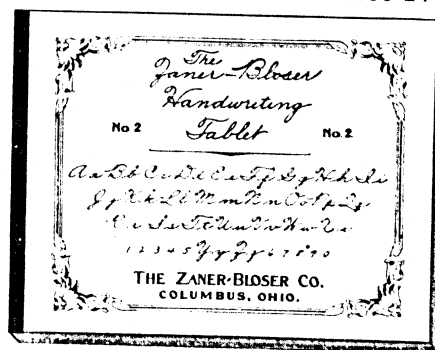 The
Zaner-Bloser
Handwriting
No 2 Tablet No. 2
Aa Bb Cc Dd Ee Ff Gg Hh Ii
Jj Kk Ll Mm Nn Oo Pp Qq
Rr Ss Tt Uu Vv Ww Xx
1 2 3 4 5 Yy Zz 6 7 8 9 0
THE ZANER-BLOSER CO.
COLUMBUS, OHIO.